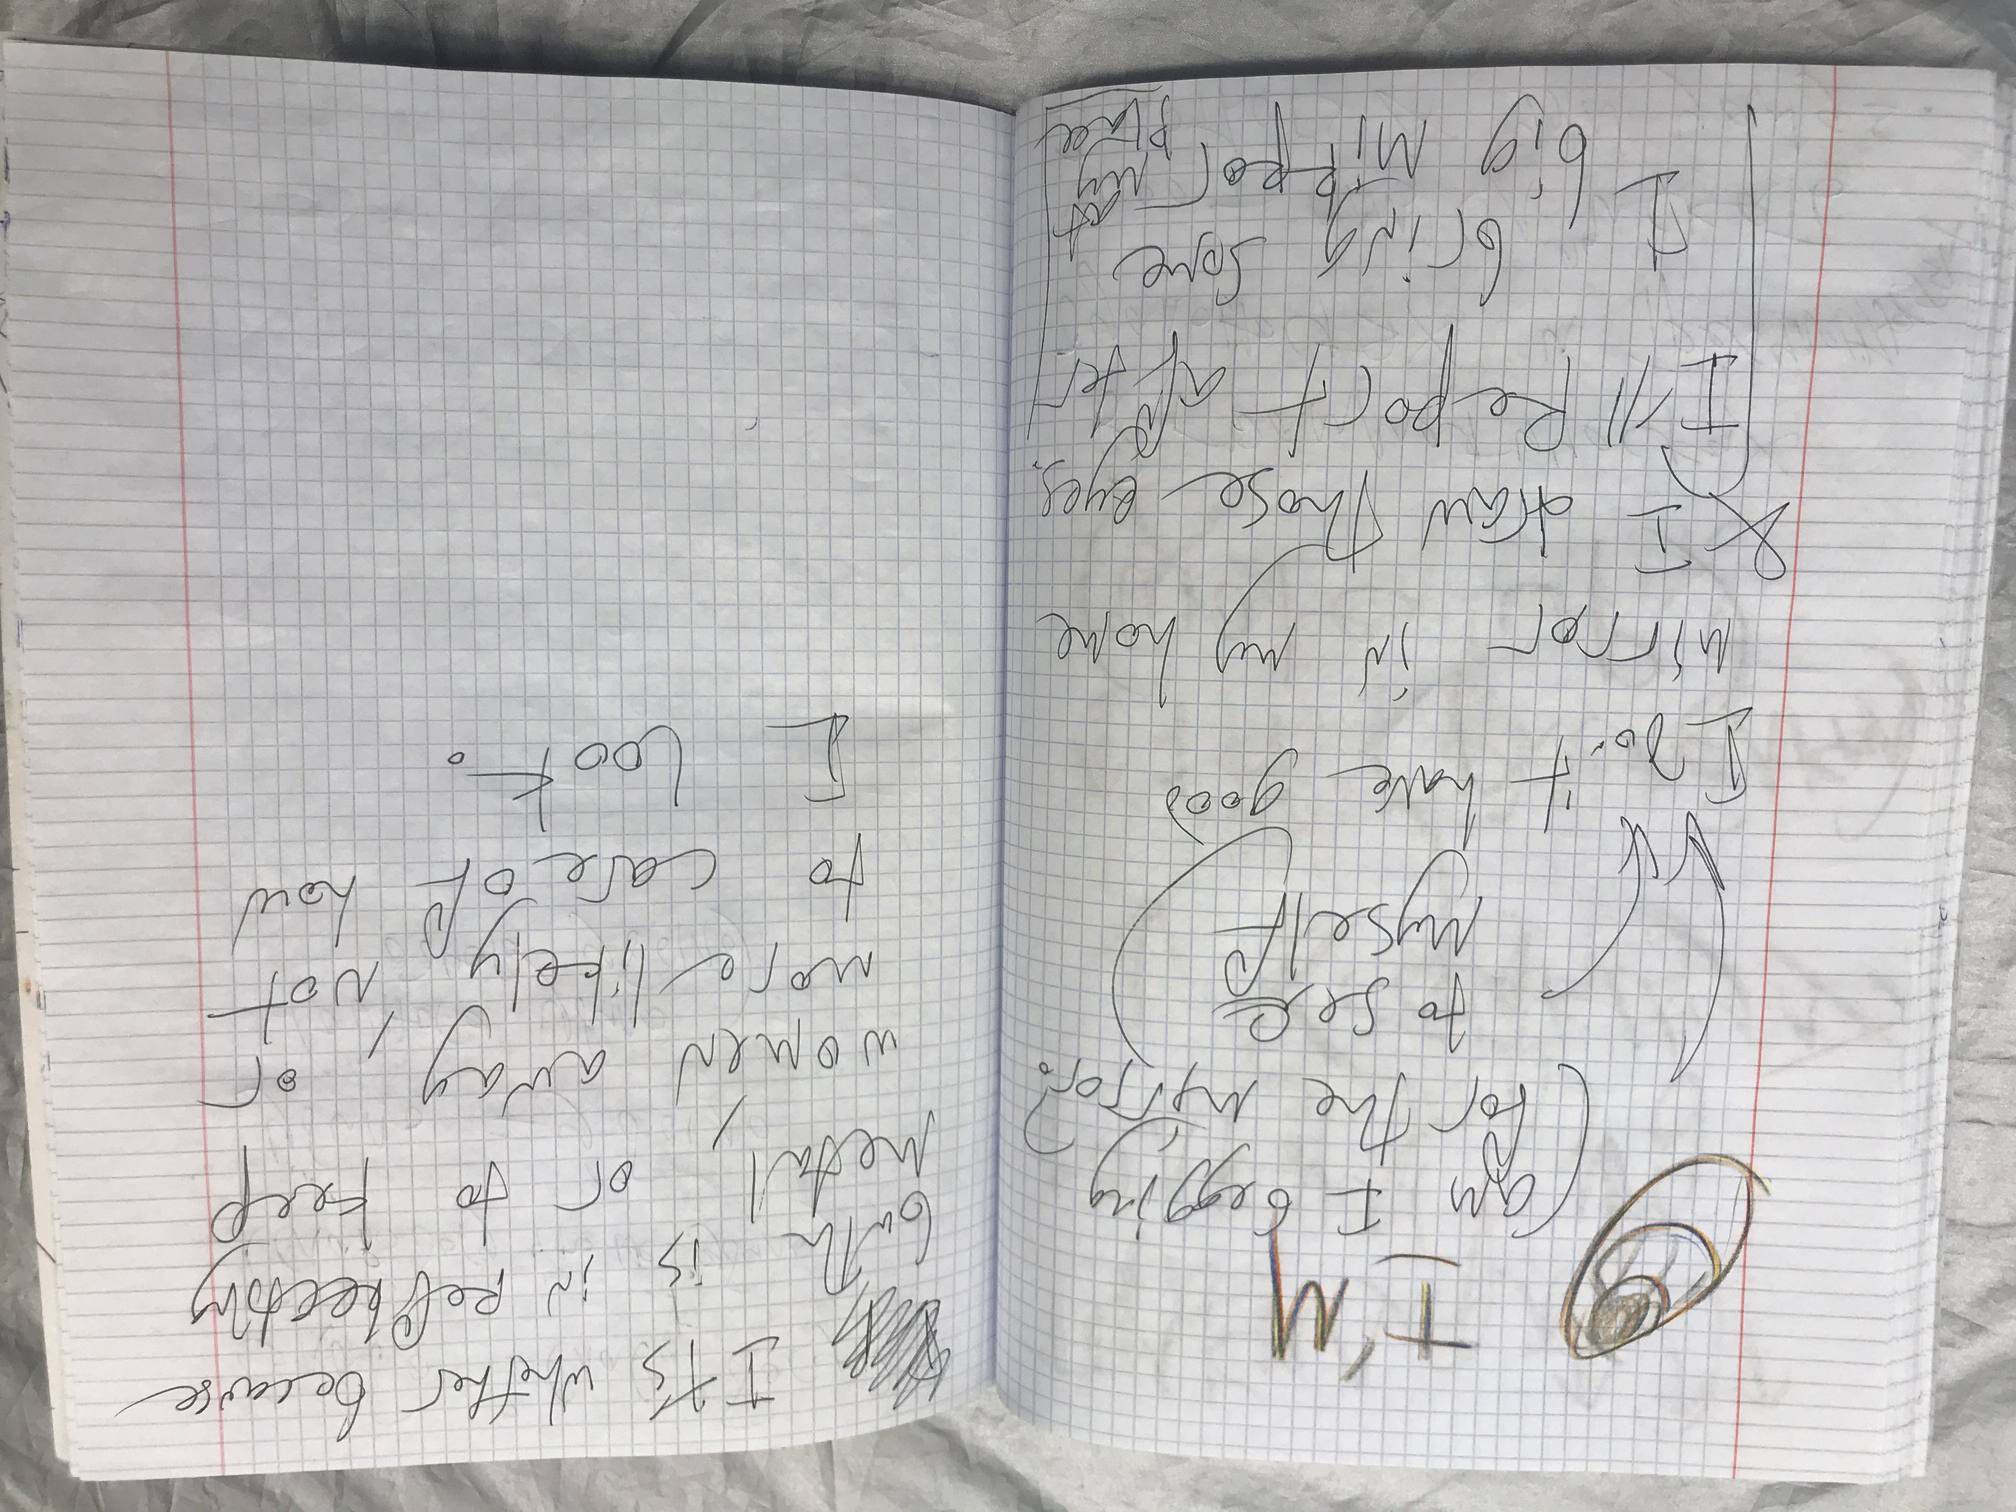 I'M
(am I begging
for the mirror?
to see
myself
I Don't have good
mirror in my home
& I draw those eyes.
I'll Report after
I bring some
big MiRRor at
my
place
It's whether because
bath is in reflecting
metal, or to keep
women away, or
more likely, not
to care of how
I look.